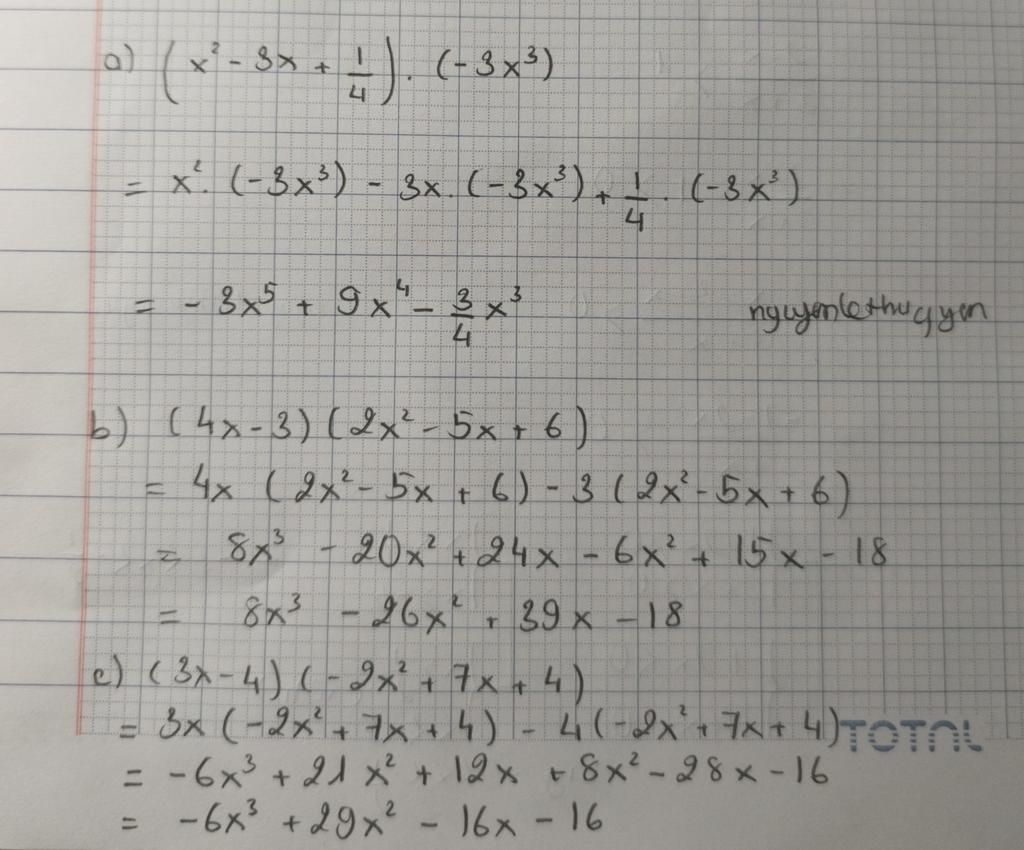 a) (x² - 3x + 1/4) . (-3x³)
= x² . (-3x³) - 3x . (-3x³) + 1/4 . (-3x³)
= - 3x⁵ + 9x⁴ - 3/4 x³
nguyenlethugyen
b) (4x - 3) (2x² - 5x + 6)
= 4x (2x² - 5x + 6) - 3 (2x² - 5x + 6)
= 8x³ - 20x² + 24x - 6x² + 15x - 18
= 8x³ - 26x² + 39x - 18
c) (3x - 4) (-2x² + 7x + 4)
= 3x (-2x² + 7x + 4) - 4 (-2x² + 7x + 4)
TOTAL
= -6x³ + 21x² + 12x + 8x² - 28x - 16
= -6x³ + 29x² - 16x - 16